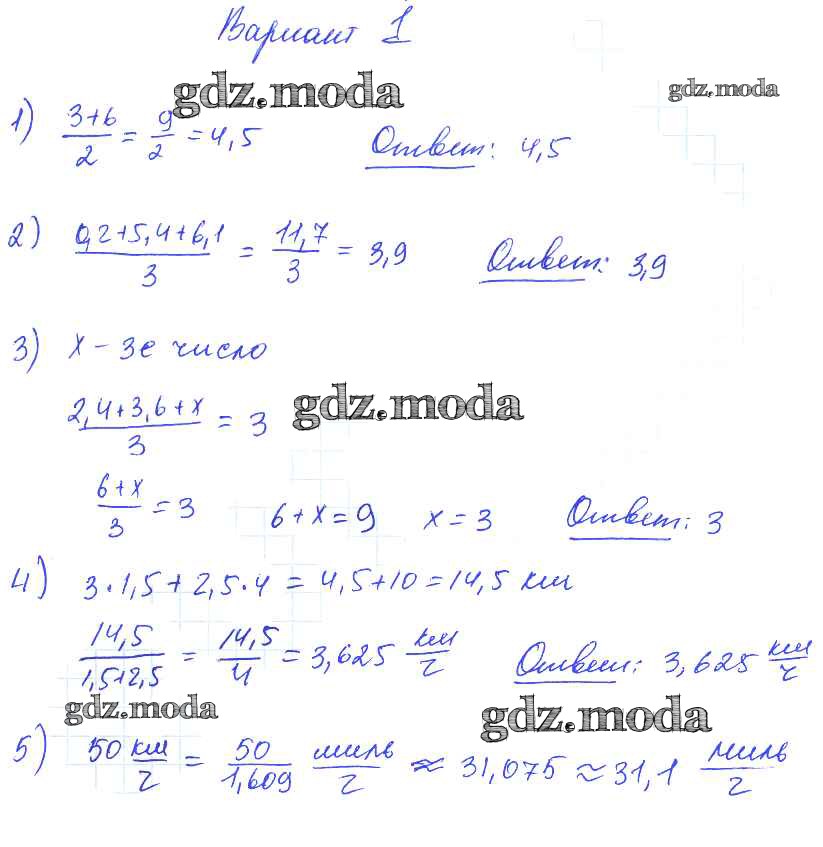 Вариант 1
gdz.moda
gdz.moda
1) (3+6)/2 = 9/2 = 4,5 Ответ: 4,5
2) (0,2+5,4+6,1)/3 = 11,7/3 = 3,9 Ответ: 3,9
3) x – 3е число
(2,4+3,6+x)/3 = 3
gdz.moda
(6+x)/3 = 3 6+x=9 x=3 Ответ: 3
4) 3·1,5+2,5·4 = 4,5+10=14,5 км
14,5/(1,5+2,5) = 14,5/4 = 3,625 км/ч Ответ: 3,625 км/ч
gdz.moda
gdz.moda
5) 50 км/ч = 50/1,609 миль/ч ≈ 31,075 ≈ 31,1 миль/ч